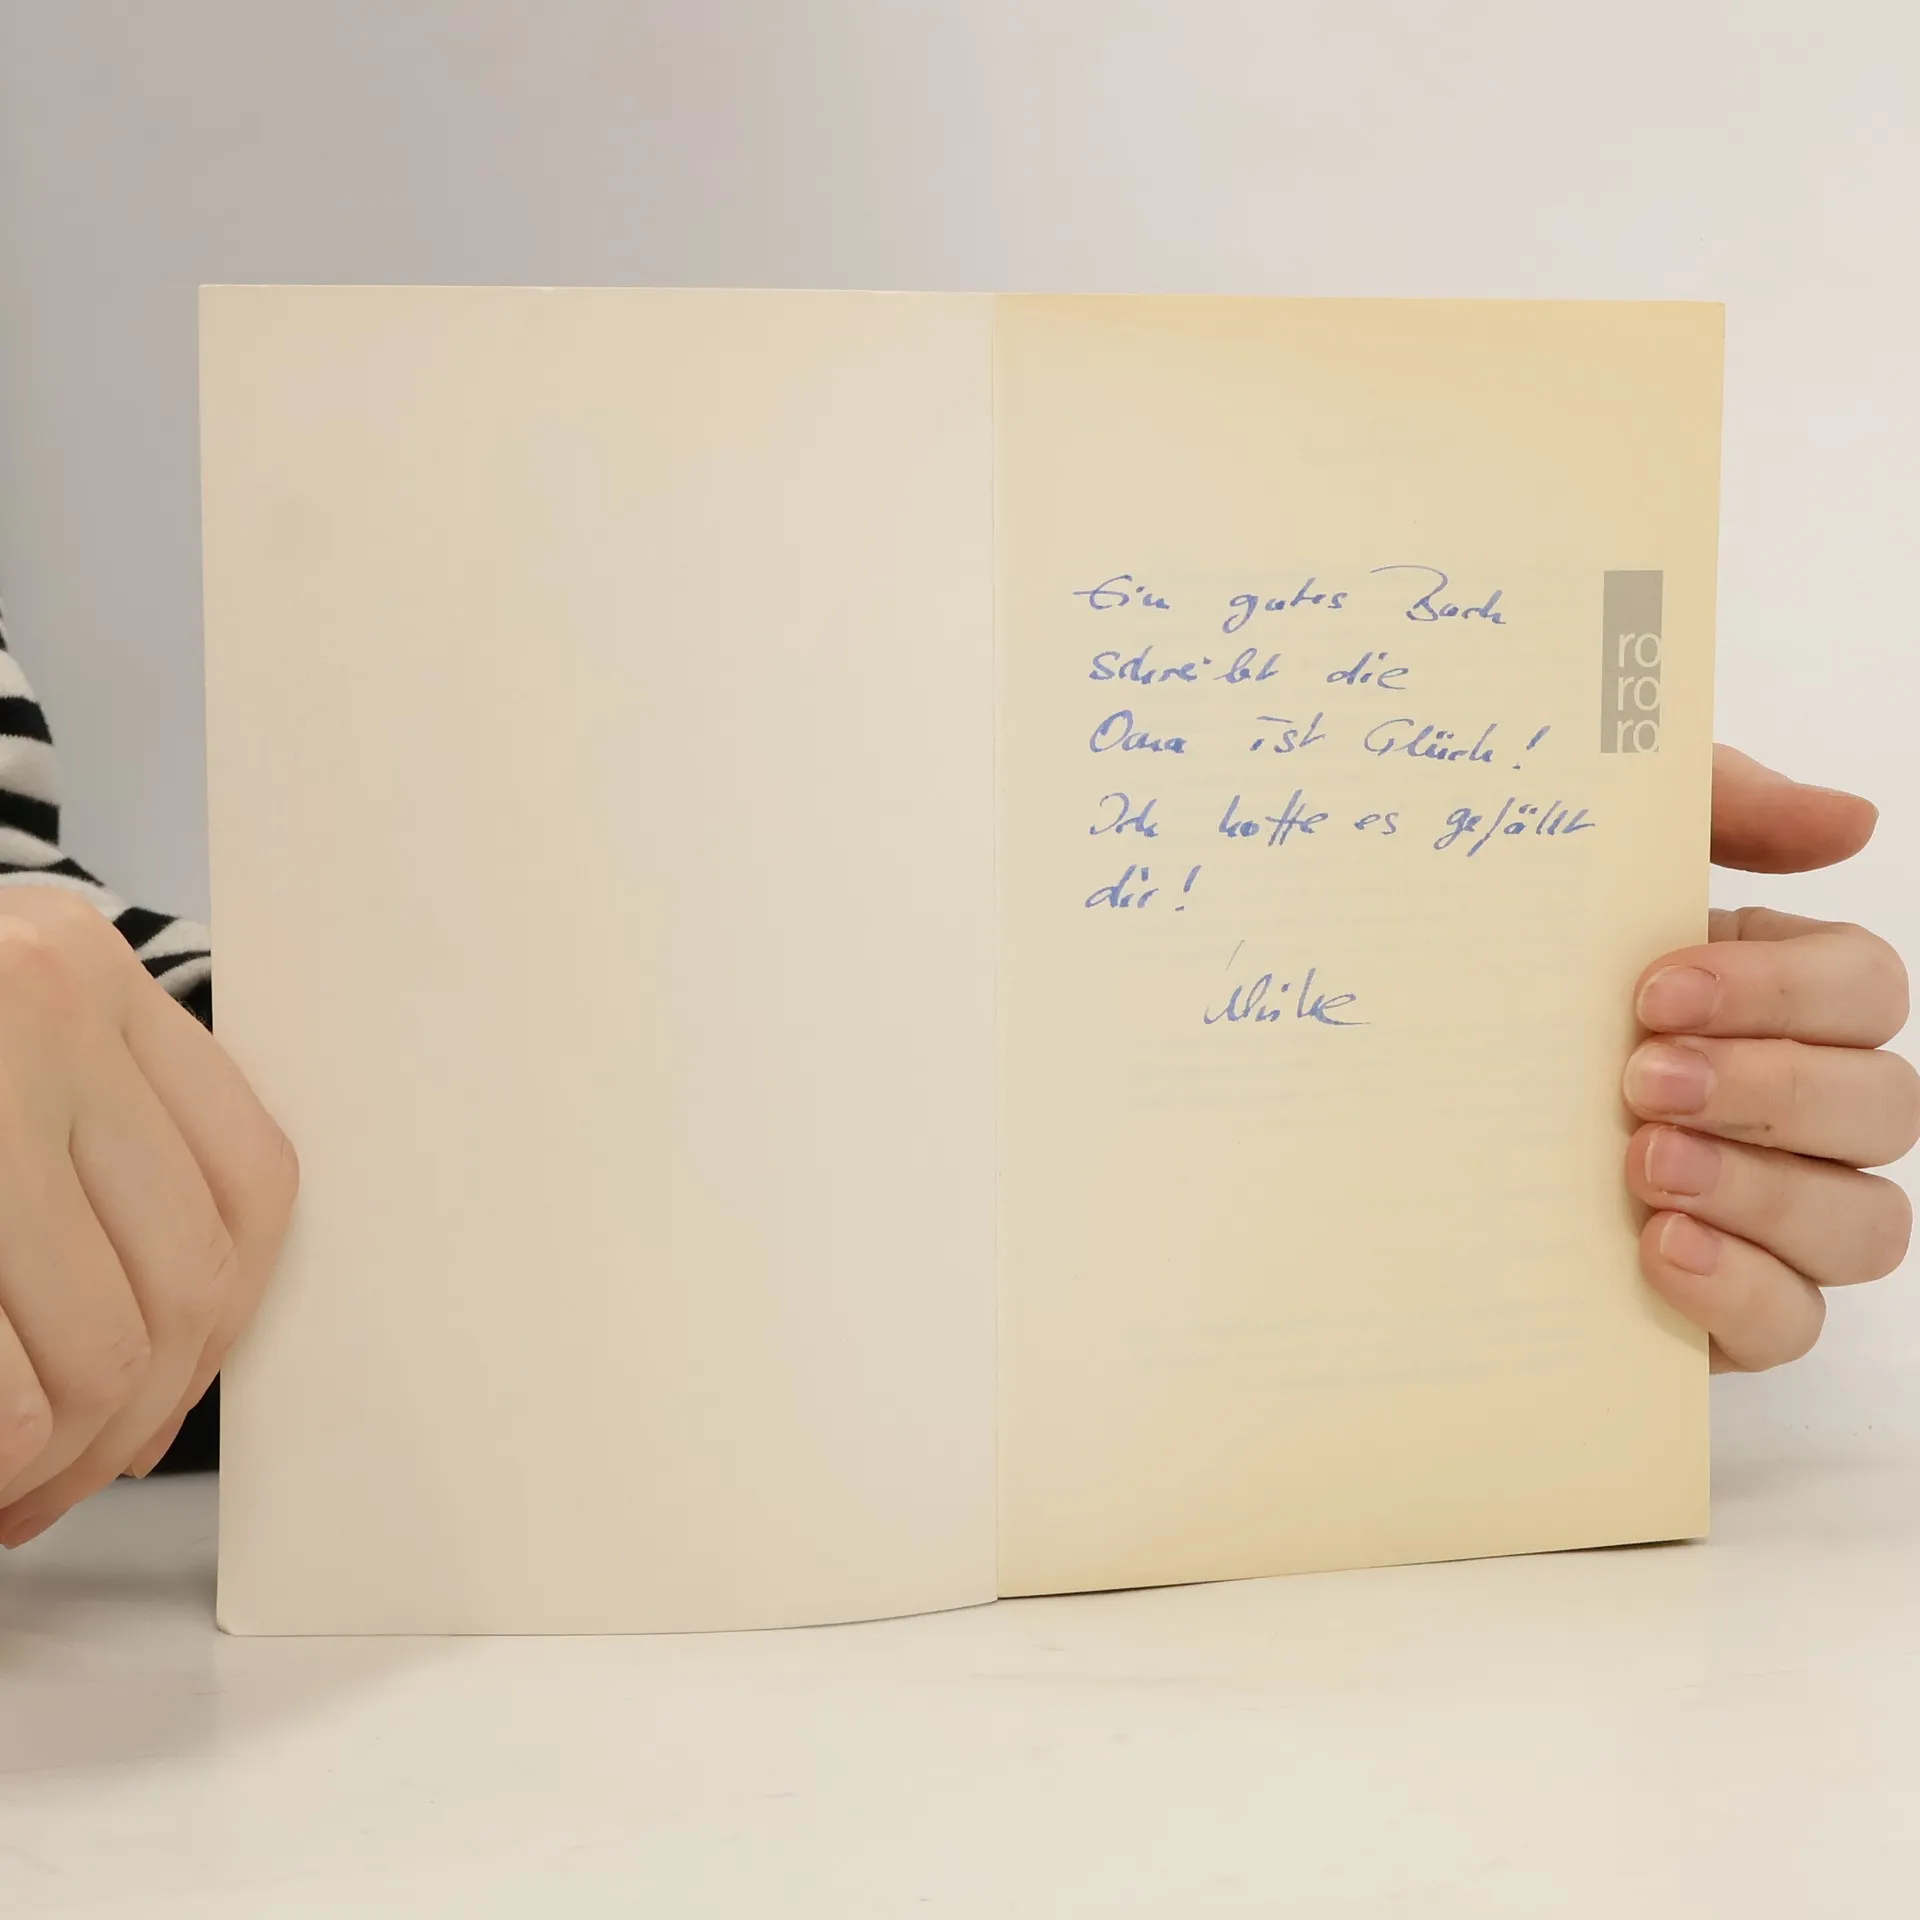 Ein gutes Buch
schreibt die
Oma ist Glück!
Ich hoffe es gefällt
dir!
ro
ro
ro